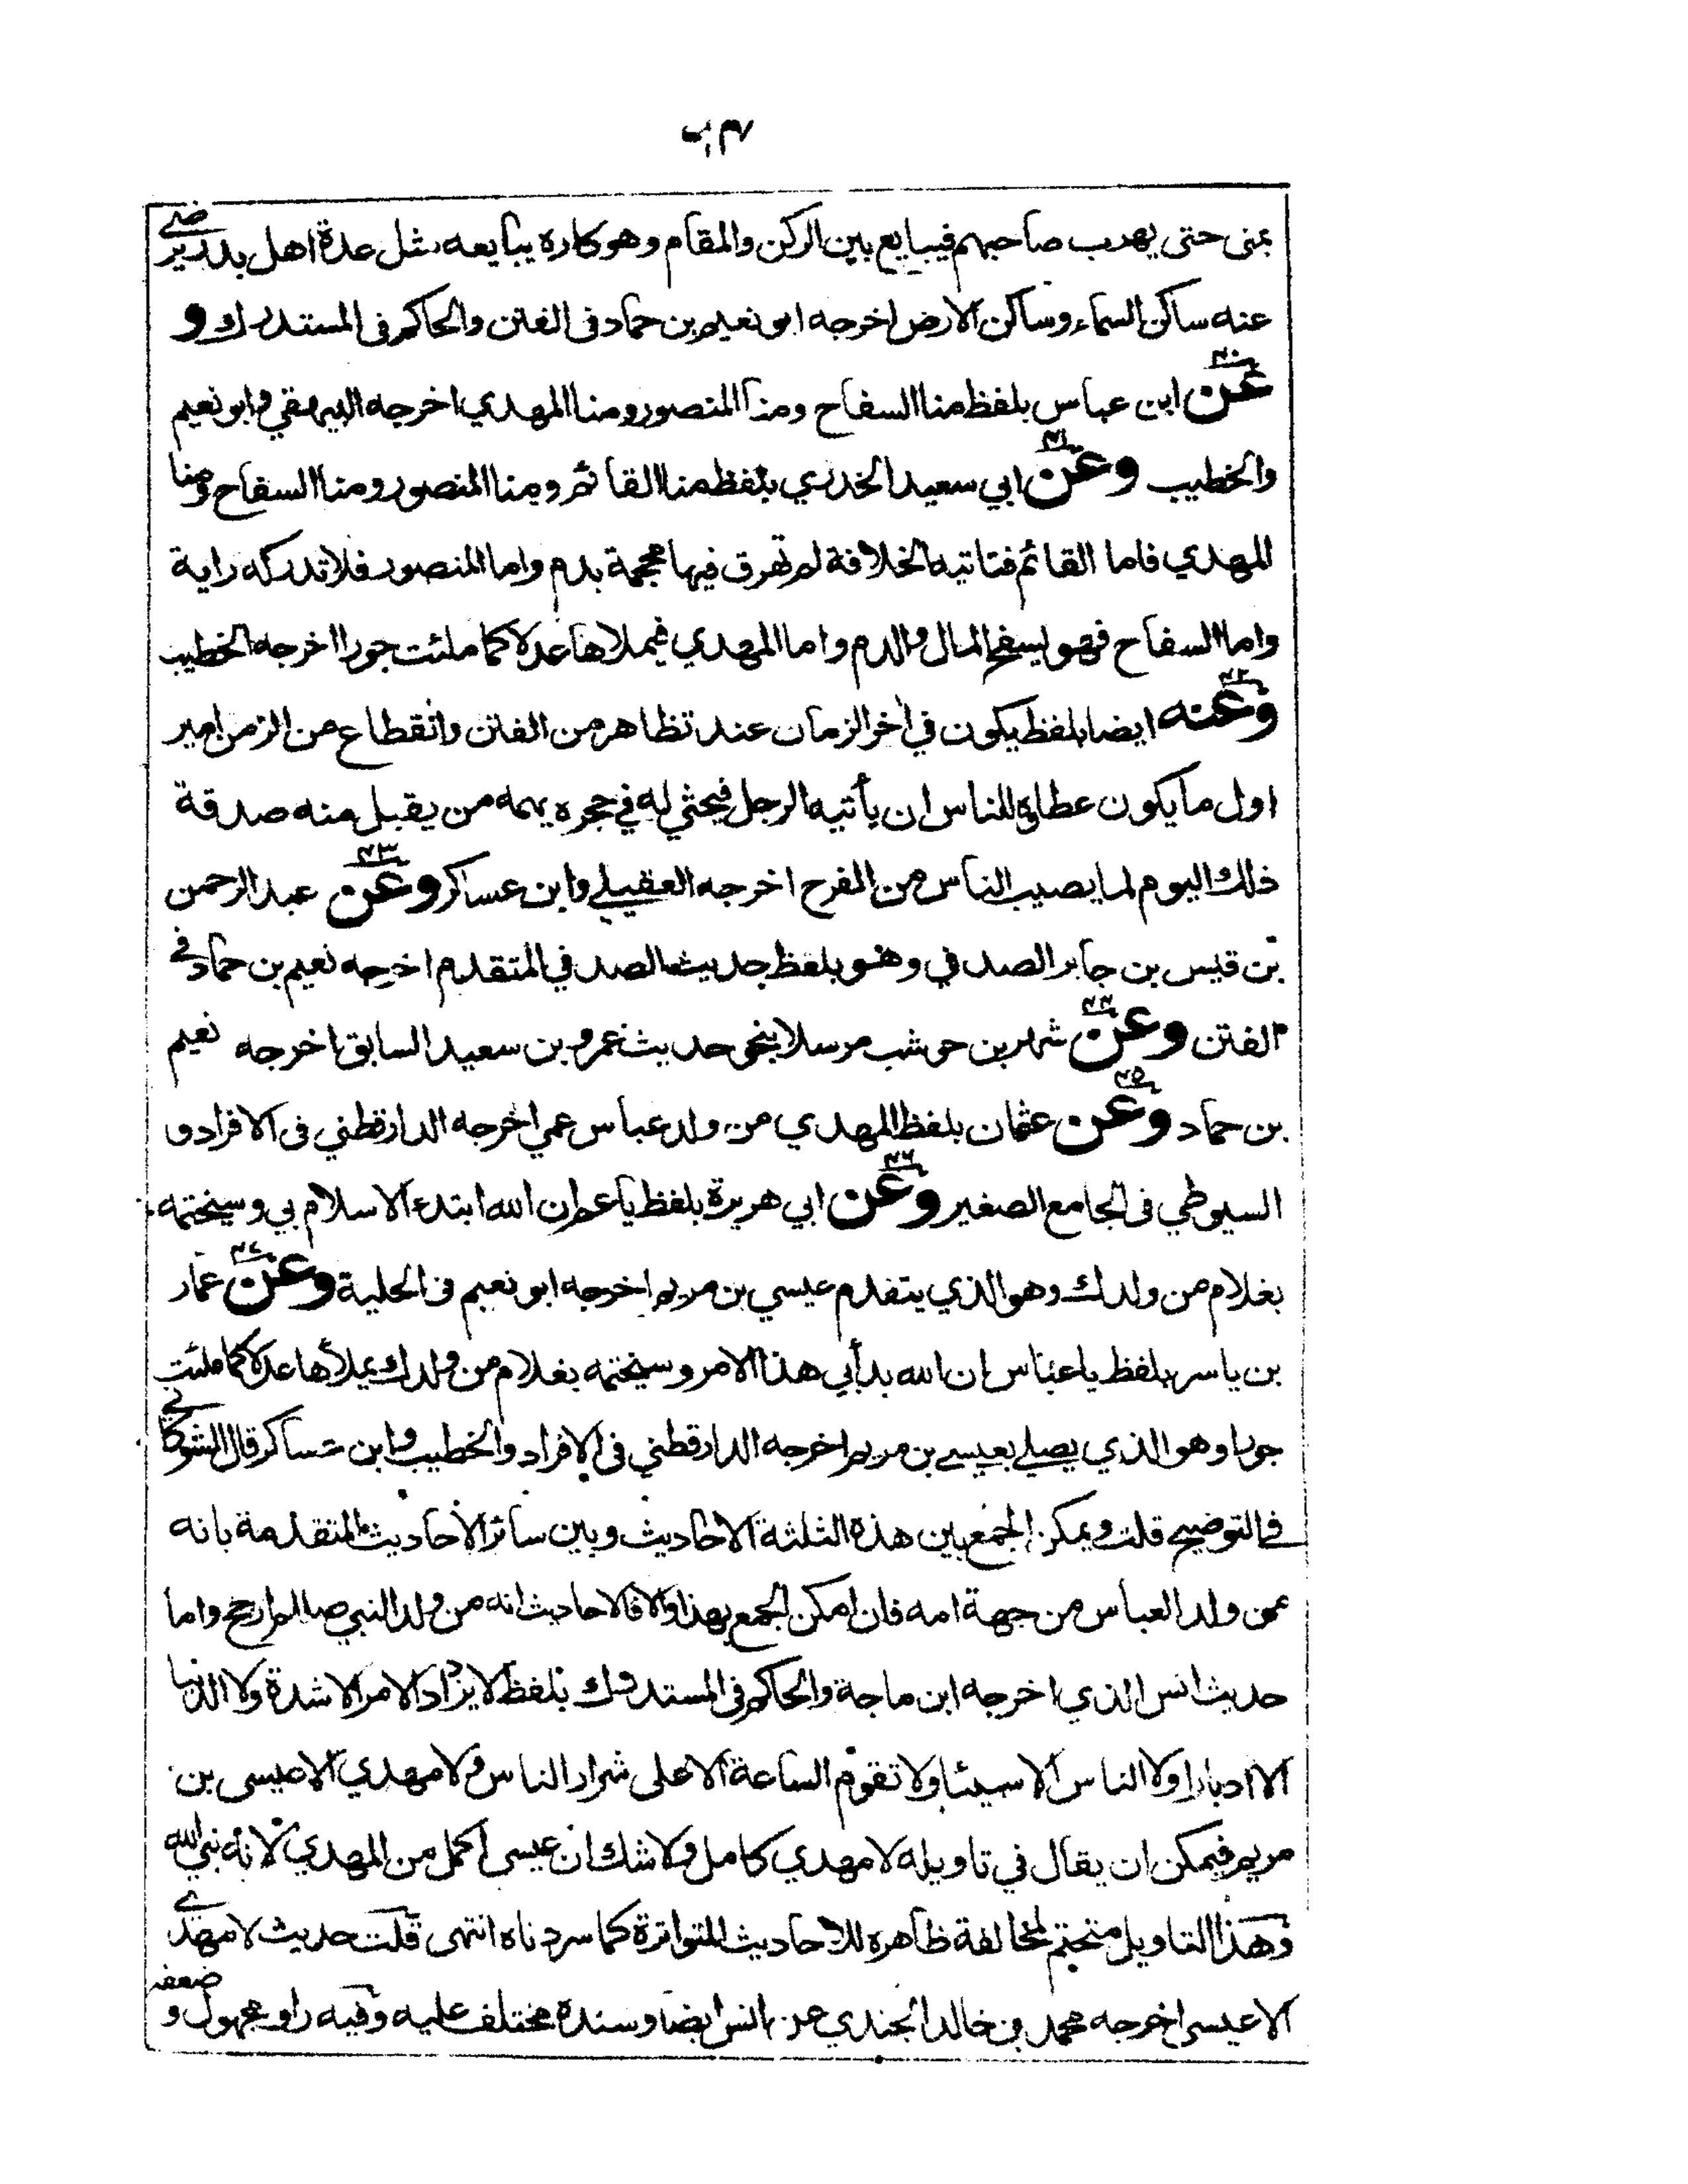 بمنى حتى يهرب صاحبهم فيبايع بين الركن والمقام وهو كاره يبايعه مثل عدة اهل بدر يرضى
عنه ساكن السماء وساكن الارض اخرجه ابو نعيم بن حماد فى الفتن والحاكم فى المستدرك و
عن ابن عباس بلفظ منا السفاح ومنا المنصور ومنا المهدي اخرجه البيهقي وابو نعيم
والخطيب وعن ابي سعيد الخدري بلفظ منا القائم ومنا المنصور ومنا السفاح ومنا
المهدي فاما القائم فتاتيه الخلافة لم تهرق فيها محجمة بدم واما المنصور فلا تدركه راية
واما السفاح فهو يسفح المال والدم واما المهدي فيملاها عدلا كما ملئت جورا اخرجه الخطيب
وعنه ايضا بلفظ يكون في اخر الزمان عند تظاهر من الفتن وانقطاع من الزمن امير
اول ما يكون عطاؤه للناس ان يأتيه الرجل فيحثي له في حجره يهمه من يقبل منه صدقة
ذلك اليوم لما يصيب الناس من الفرح اخرجه العقيلي وابن عساكر وعن عبد الرحمن
بن قيس بن جابر الصدفي وهو بلفظ حديث الصدفي المتقدم اخرجه نعيم بن حماد في
الفتن وعن شهر بن حوشب مرسلا بنحو حديث عمرو بن سعيد السابق اخرجه نعيم
بن حماد وعن عثمان بلفظ المهدي من ولد عباس عمي اخرجه الدارقطني فى الافراد و
السيوطي فى الجامع الصغير وعن ابي هريرة بلفظ يا عم ان الله ابتدء الاسلام بي وسيختمه
بغلام من ولدك وهو الذي يتقدم عيسي بن مريم اخرجه ابو نعيم فى الحلية وعن عمار
بن ياسر بلفظ يا عباس ان الله بدأ بي هذا الامر وسيختمه بغلام من ولدك يملأها عدلا كما ملئت
جورا وهو الذي يصلي بعيسے بن مريم اخرجه الدارقطني فى الافراد والخطيب وابن عساكر قال الشوكاني
في التوضيح قلت ويمكن الجمع بين هذه الثلثة الاحاديث وبين سائر الاحاديث المتقدمة بانه
من ولد العباس من جهة امه فان امكن الجمع بهذا والا فالاحاديث انه من ولد النبي صللم ارجح واما
حديث انس الذي اخرجه ابن ماجة والحاكم فى المستدرك بلفظ لا يزداد الامر الا شدة ولا الدنيا
الا ادبارا ولا الناس الا ولا تقوم الساعة الا على شرار الناس ولا مهدي الا عيسى بن
مريم فيمكن ان يقال في تاويله لا مهدي كامل ولا شك ان عيسى اكمل من المهدي لانه نبي الله
وهذا التاويل متحتم لمخالفة ظاهره للاحاديث المتواترة كما سردناه انتهى قلت حديث لا مهدي
الا عيسى اخرجه محمد بن خالد الجندي عن انس ايضا وسنده مختلف عليه وفيه راو مجهول و ضعفه